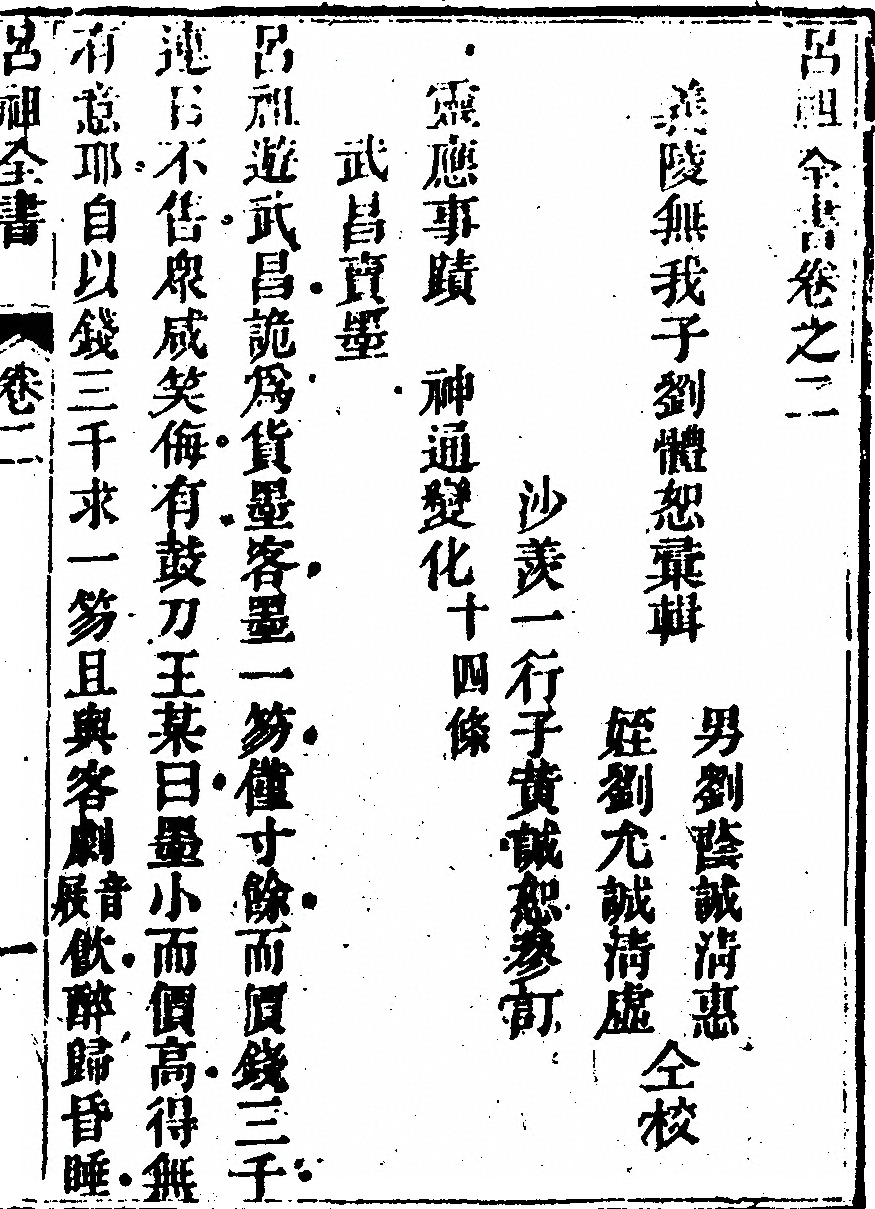 呂祖全書卷之二
義陵無我子劉體恕彙輯
男劉蔭誠清惠
姪劉允誠清虛
仝校
沙羨一行子黃誠恕參訂
靈應事蹟 神通變化十四條
武昌賣墨
呂祖遊武昌詭爲貨墨客墨一笏僅寸餘而價錢三千
連日不售衆咸笑侮有鼓刀王某曰墨小而價高得無
有意耶自以錢三千求一笏且與客劇音展飲醉歸昏睡
呂祖全書 卷二 一